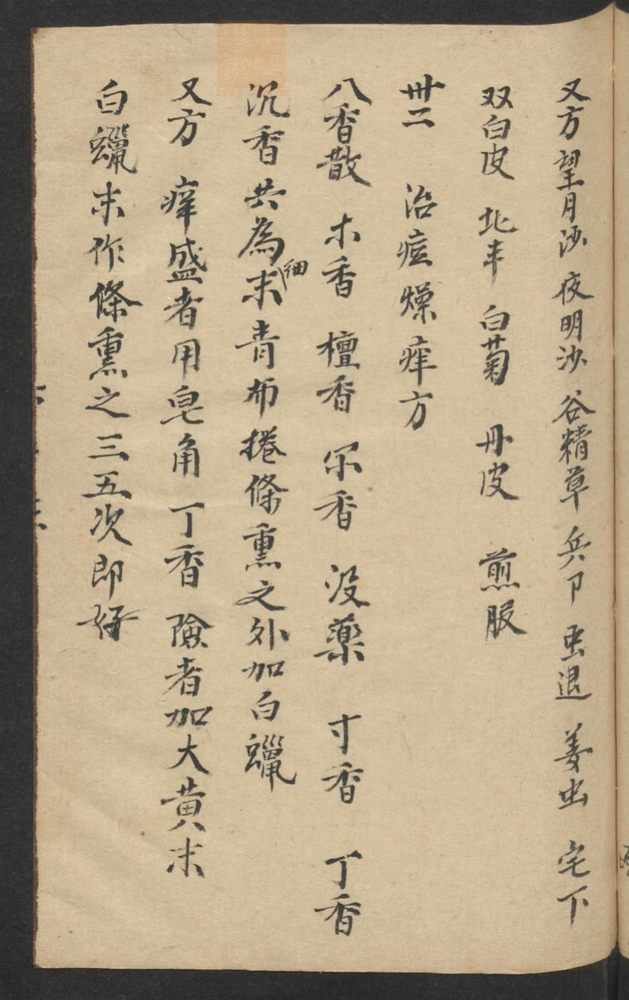 又方 望月沙 夜明沙 谷精草 兵卩 虫退 姜虫 宅下
双白皮 北丰 白菊 丹皮 煎服
卅二 治痘燥痒方
八香散 木香 檀香 芸香 没藥 寸香 丁香
沉香共為細末青布捲條熏之外加白蠟
又方 痒盛者用皂角 丁香 險者加大黄末
白蠟末作條熏之三五次即好